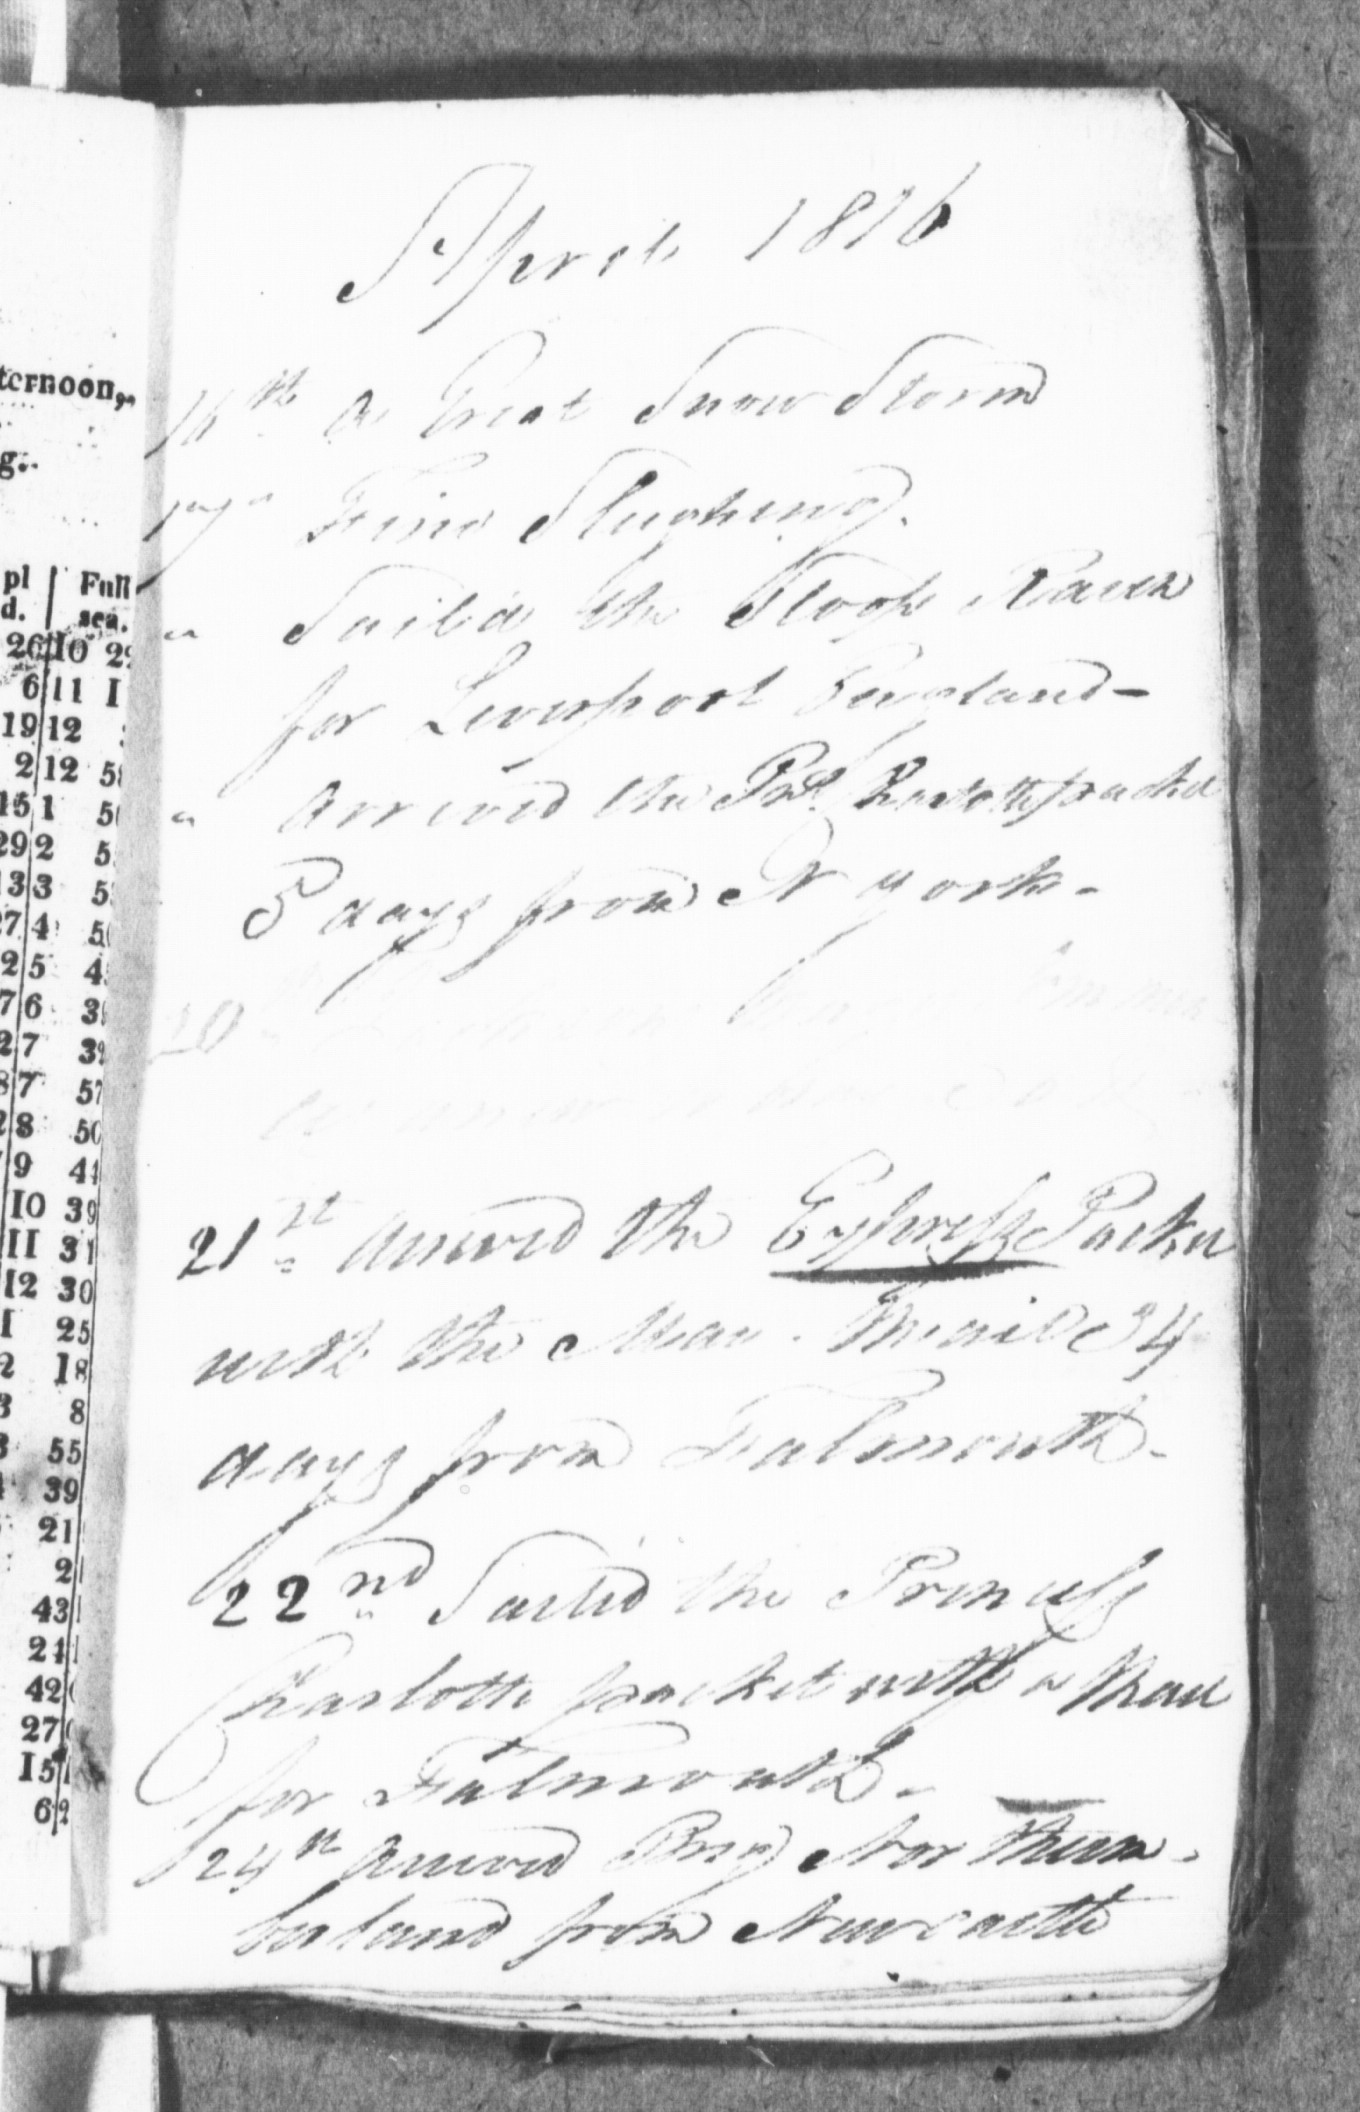 ternoon,
g.
pl | Full
d. | sea.
26 10 2
6 11 1
19 12
2 12 5
15 1 5
29 2 5
13 3 5
27 4 5
2 5 4
7 6 3
2 7 39
8 7 57
2 8 50
9 44
10 39
11 31
12 30
1 25
2 18
3 8
3 55
4 39
21
2
43
24
42
27
15
6
April 1816
16th A Great Snow Storm
17" Fine Sleighing.
" Sail'd the Sloop
for Liverpool England -
" Arrived the Prs Charlotte packet
days from N York -
20
21st Arrived the Express Packet
with the Mar. Mail 34
days from Falmouth -
22nd Sailed the Princess
Charlotte packet with a Mail
for Falmouth -
24th Arrived Brig Northum-
berland from Newcastle